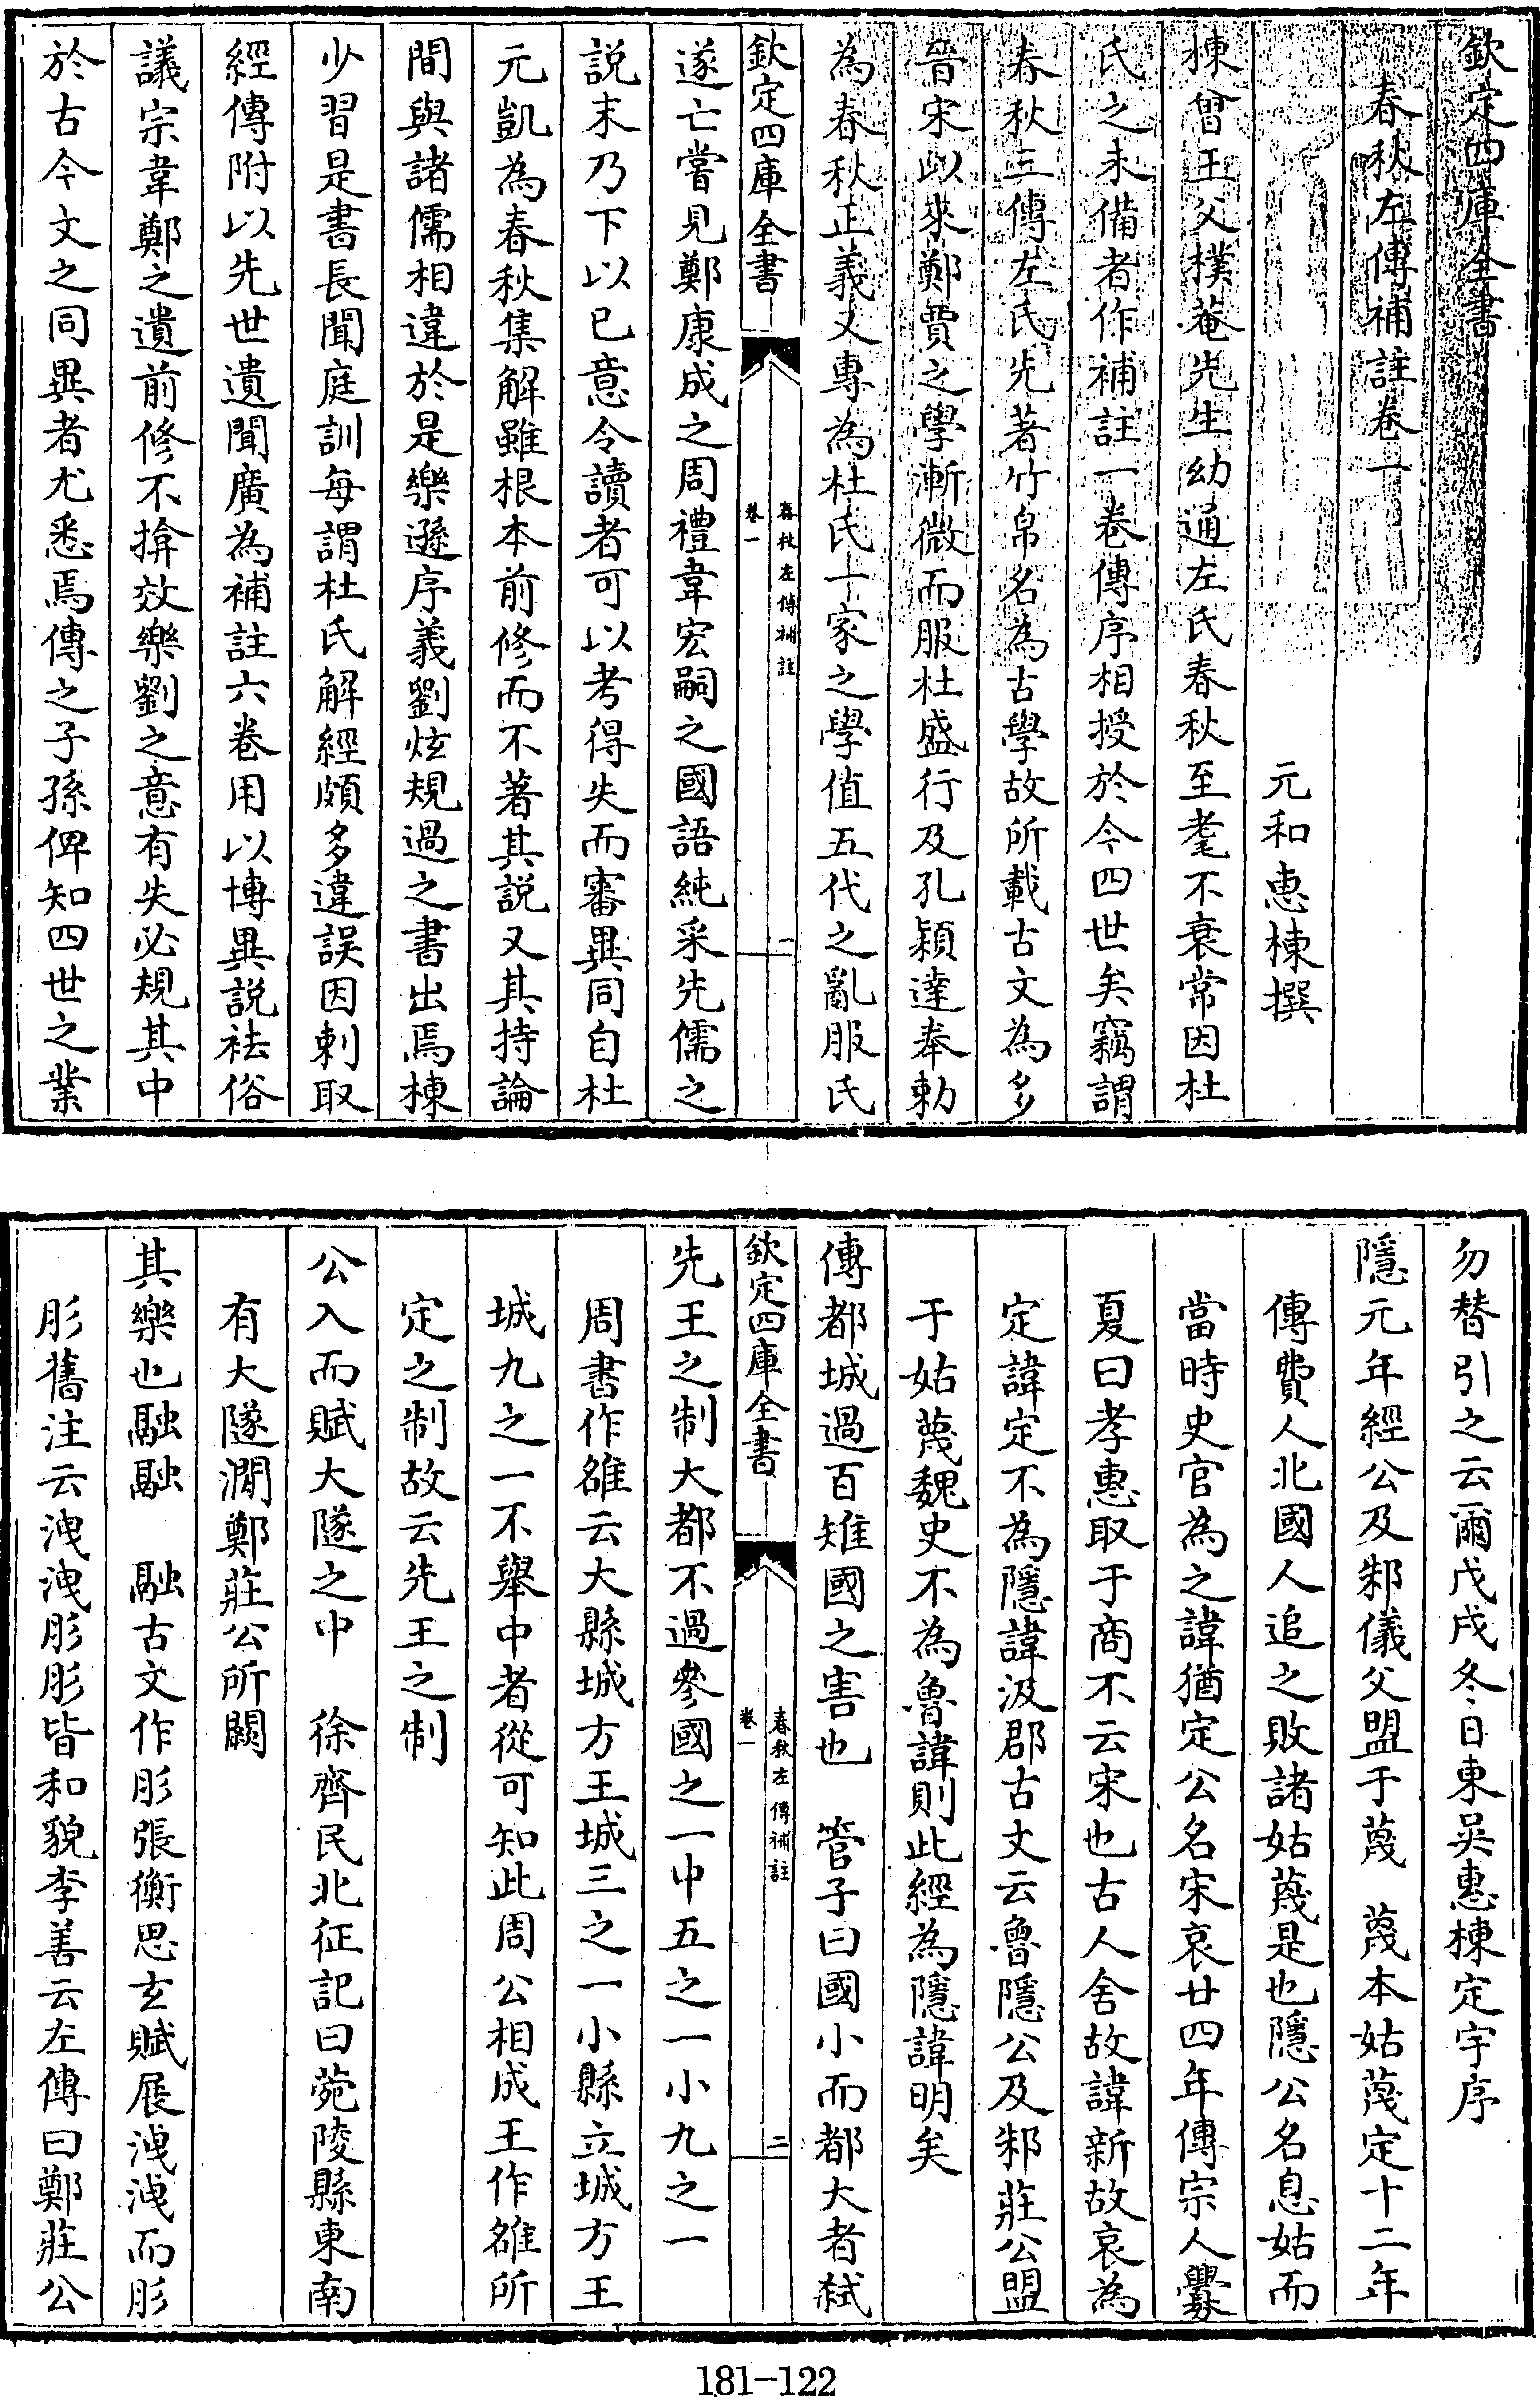 欽定四庫全書
春秋左傳補註卷一
元和惠棟撰
棟曾王父樸菴先生幼通左氏春秋至耄不衰常因杜
氏之未備者作補註一卷傳序相授於今四世矣竊謂
春秋三傳左氏先著竹帛名為古學故所載古文為多
晉宋以來鄭賈之學漸微而服杜盛行及孔穎達奉勅
為春秋正義又專為杜氏一家之學值五代之亂服氏
欽定四庫全書
春秋左傳補註
卷一
一
遂亡嘗見鄭康成之周禮韋宏嗣之國語純采先儒之
説末乃下以已意令讀者可以考得失而審異同自杜
元凱為春秋集解雖根本前修而不著其説又其持論
間與諸儒相違於是樂遜序義劉炫規過之書出焉棟
少習是書長聞庭訓每謂杜氏解經頗多違誤因刺取
經傳附以先世遺聞廣為補註六卷用以博異説袪俗
議宗韋鄭之遺前修不揜效樂劉之意有失必規其中
於古今文之同異者尤悉焉傳之子孫俾知四世之業
勿替引之云爾戊戌冬日東吳惠棟定宇序
隱元年經公及邾儀父盟于蔑　蔑本姑蔑定十二年
傳費人北國人追之敗諸姑蔑是也隱公名息姑而
當時史官為之諱猶定公名宋哀廿四年傳宗人釁
夏曰孝惠取于商不云宋也古人舍故諱新故哀為
定諱定不為隱諱汲郡古文云魯隱公及邾莊公盟
于姑蔑魏史不為魯諱則此經為隱諱明矣
傳都城過百雉國之害也　管子曰國小而都大者弑
欽定四庫全書
春秋左傳補註
卷一
二
先王之制大都不過參國之一中五之一小九之一
周書作雒云大縣城方王城三之一小縣立城方王
城九之一不舉中者從可知此周公相成王作雒所
定之制故云先王之制
公入而賦大隧之中　徐齊民北征記曰菀陵縣東南
有大隧澗鄭莊公所闕
其樂也融融　融古文作肜張衡思玄賦展洩洩而肜
肜舊注云洩洩肜肜皆和貌李善云左傳曰鄭莊公
181-122